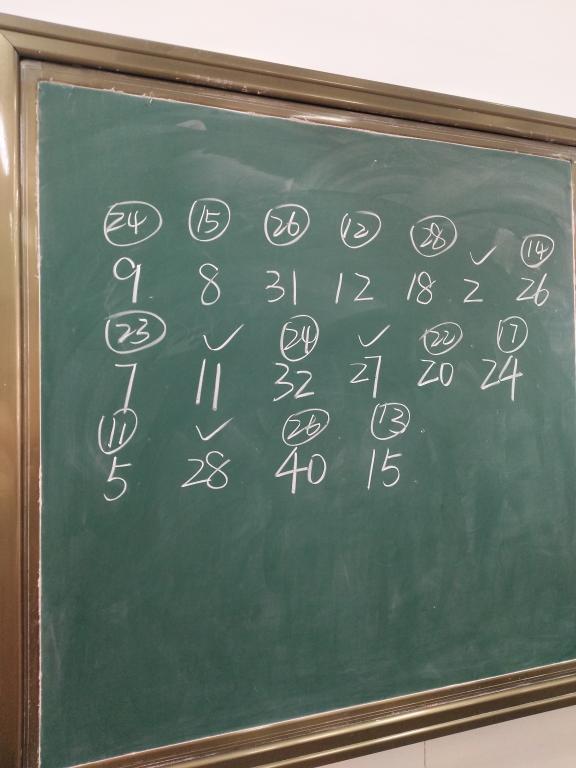 ㉔ ⑮ ㉖ ⑫ ㉘ ✓ ⑭
9 8 31 12 18 2 26
㉓ ✓ ㉔ ✓ ㉒ ⑰
7 11 32 27 20 24
⑪ ✓ ㉖ ⑬
5 28 40 15